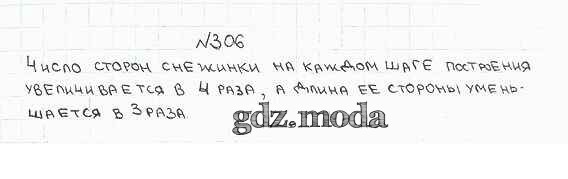 №306
Число сторон снежинки на каждом шаге построения
увеличивается в 4 раза, а длина ее стороны умень-
шается в 3 раза
gdz.moda